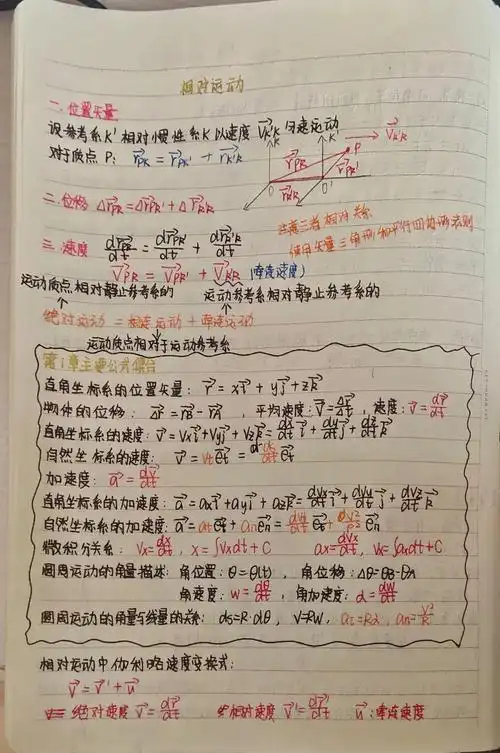 相对运动
一. 位置矢量
设参考系K'相对惯性系K以速度 V⃗K'K 匀速运动
对于质点 P: r⃗PK = r⃗PK' + r⃗K'K
K K' P V⃗K'K
r⃗PK r⃗PK'
O r⃗K'K O'
二. 位移 Δr⃗PK = Δr⃗PK' + Δr⃗K'K
注意三者相对关系
使用矢量三角形和平行四边形法则
三. 速度 dr⃗PK/dt = dr⃗PK'/dt + dr⃗K'K/dt
V⃗PK = V⃗PK' + V⃗K'K (牵连速度)
运动质点相对静止参考系的 运动参考系相对静止参考系的
绝对运动 = 相对运动 + 牵连运动
运动质点相对于运动参考系
第1章主要公式集合
直角坐标系的位置矢量: r⃗ = xi⃗ + yj⃗ + zk⃗
物体的位移: Δr⃗ = r⃗B - r⃗A , 平均速度: v⃗ = Δr⃗/Δt , 速度: v⃗ = dr⃗/dt
直角坐标系的速度: v⃗ = Vxi⃗ + Vyj⃗ + Vzk⃗ = dx/dt i⃗ + dy/dt j⃗ + dz/dt k⃗
自然坐标系的速度: v⃗ = vt e⃗t = ds/dt e⃗t
加速度: a⃗ = dv⃗/dt
直角坐标系的加速度: a⃗ = axi⃗ + ayj⃗ + azk⃗ = dVx/dt i⃗ + dVy/dt j⃗ + dVz/dt k⃗
自然坐标系的加速度: a⃗ = at e⃗t + an e⃗n = dv/dt e⃗t + v²/ρ e⃗n
微积分关系: Vx = dx/dt , x = ∫Vxdt + C ax = dVx/dt , Vx = ∫axdt + C
圆周运动的角量描述: 角位置: θ = θ(t) , 角位移: Δθ = θB - θA
角速度: w = dθ/dt , 角加速度: α = dw/dt
圆周运动的角量与线量的关系: ds = R·dθ , V = RW , at = Rα , an = V²/R
相对运动中伽利略速度变换式:
v⃗ = v⃗' + u⃗
绝对速度 v⃗ = dr⃗/dt 相对速度 v⃗' = dr⃗'/dt u⃗: 牵连速度